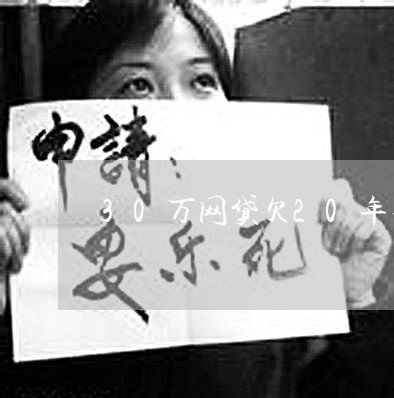 申請：
30万网贷欠20年
安乐死